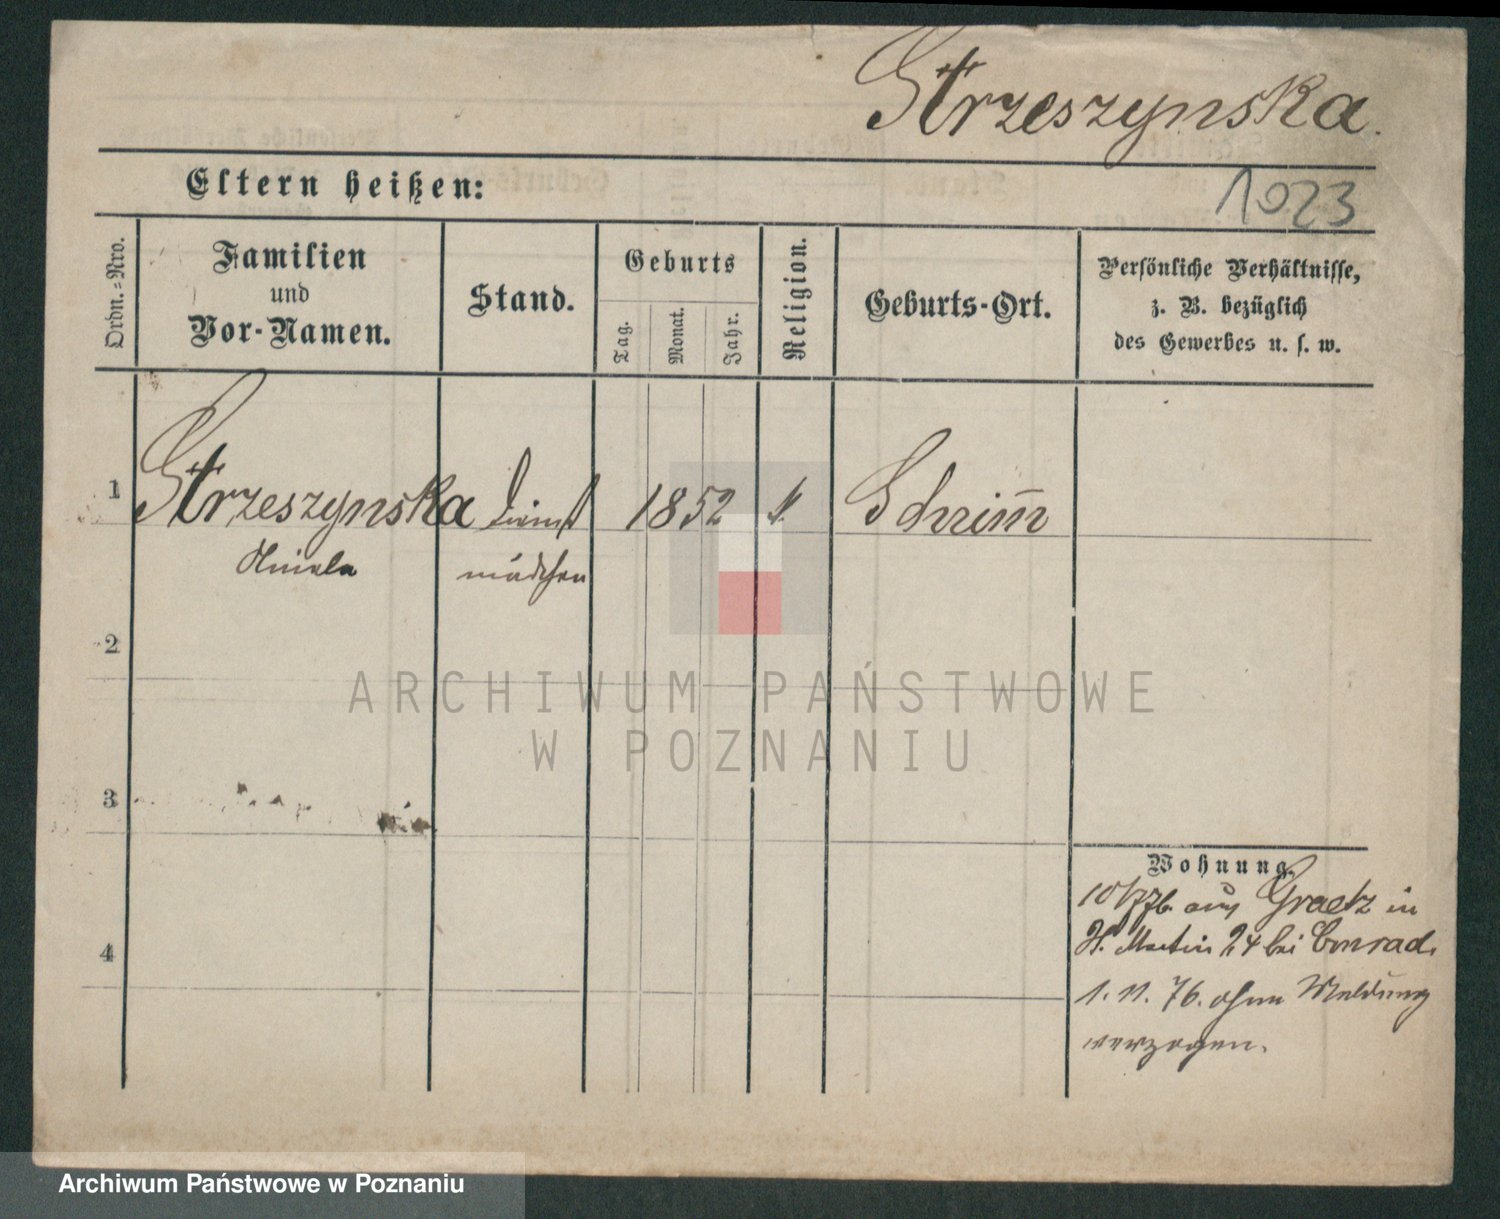 Strzeszynska.
Eltern heißen:
1023
Ordn.-Nro.
Familien
und
Vor-Namen.
Stand.
Geburts
Tag.
Monat.
Jahr.
Religion.
Geburts-Ort.
Persönliche Verhältnisse,
z. B. bezüglich
des Gewerbes u. s. w.
1
Strzeszynska
Dienst
1852
k.
Schrim̅
mädchen
2
ARCHIWUM PAŃSTWOWE
W POZNANIU
3
Wohnung.
76. aus Graetz in
4
St. Martin 24 bei Conrad.
1. 11. 76. ohne Meldung
verzogen.
Archiwum Państwowe w Poznaniu